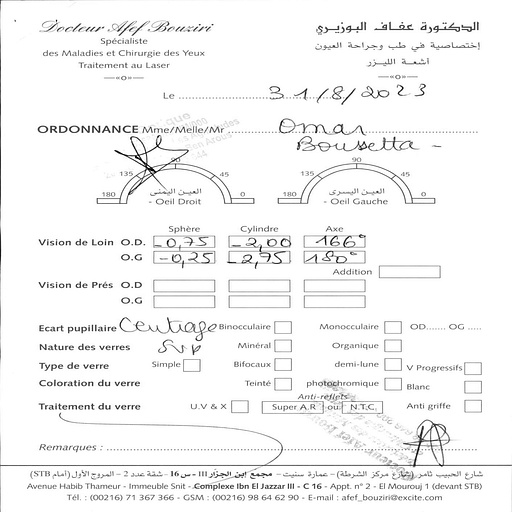 Docteur Afef Bouziri
Spécialiste
des Maladies et Chirurgie des Yeux
Traitement au Laser
الدكتورة عفاف البوزيري
إختصاصية في طب وجراحة العيون
أشعة الليزر
Le 31/8/2023
ORDONNANCE Mme/Melle/Mr Omar
Bousetta
180 135 90 45 0
العين اليمنى
- Oeil Droit
180 135 90 45 0
العين اليسرى
- Oeil Gauche
Sphère Cylindre Axe
Vision de Loin O.D. -0,75 -2,00 166°
O.G -0,25 -2,75 180°
Addition
Vision de Prés O.D
O.G
Ecart pupillaire Centrage Binocculaire Monocculaire OD....... OG .....
Nature des verres SVP Minéral Organique
Type de verre Simple Bifocaux demi-lune V Progressifs
Coloration du verre Teinté photochromique Blanc
Anti-reflets
Traitement du verre U.V & X Super A.R ou N.T.C. Anti griffe
Remarques :
شارع الحبيب ثامر (شارع مركز الشرطة) - عمارة سنيت - مجمع ابن الجزار III - س 16 - شقة عدد 2 - المروج الأول (أمام STB)
Avenue Habib Thameur - Immeuble Snit - Complexe Ibn El Jazzar III - C 16 - Appt. n° 2 - El Mourouj 1 (devant STB)
Tél. : (00216) 71 367 366 - GSM : (00216) 98 64 62 90 - E-mail : afef_bouziri@excite.com